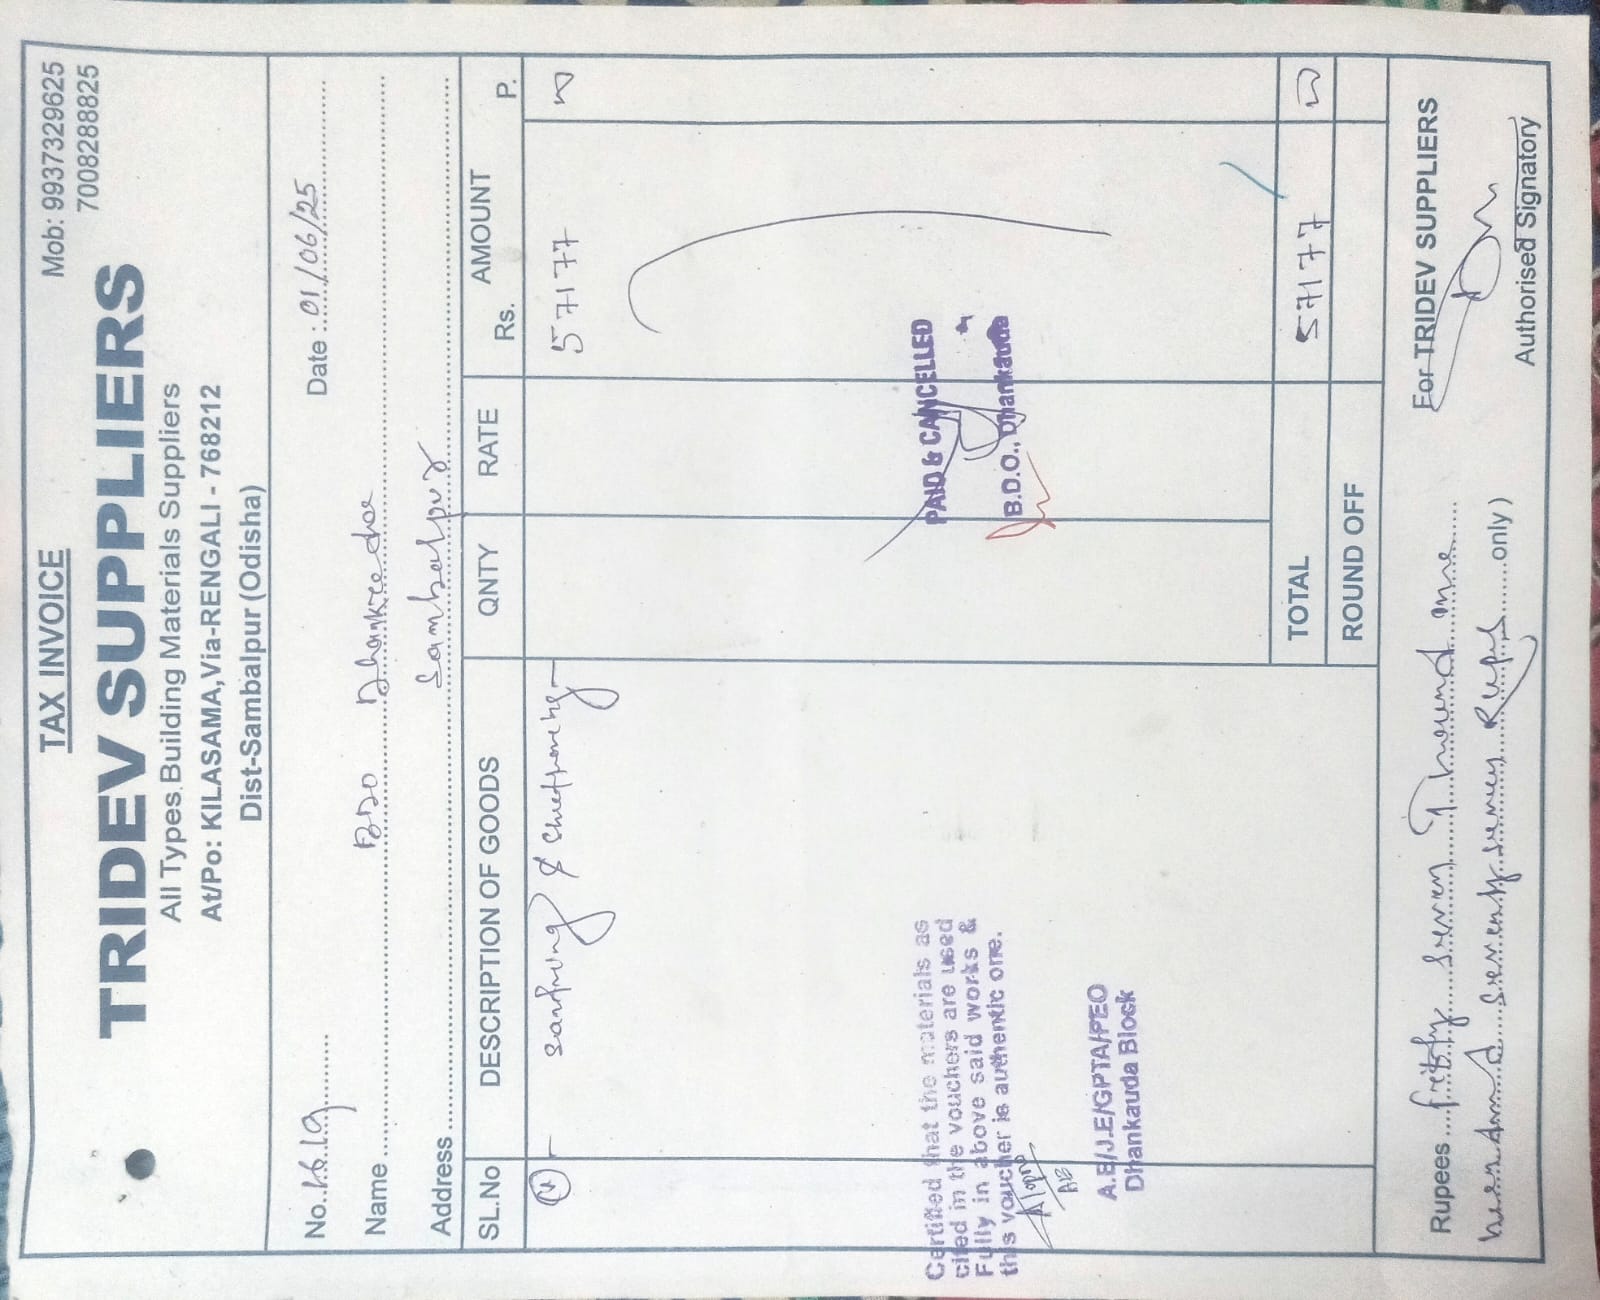 TAX INVOICE
Mob: 9937329625
7008288825
TRIDEV SUPPLIERS
All Types Building Materials Suppliers
At/Po: KILASAMA, Via-RENGALI - 768212
Dist-Sambalpur (Odisha)
No. Date : 01/06/25
Name BDO
Address Sambalpur
SL.No DESCRIPTION OF GOODS QNTY RATE AMOUNT
Rs. P.
& 57177
PAID & CANCELLED
B.D.O., Dhankauda
Certified that the materials as
cited in the vouchers are used
Fully in above said works &
this voucher is authentic one.
AE
A.E/J.E/GPTA/PEO
Dhankauda Block
TOTAL 57177
ROUND OFF
Rupees seven Thousand one
seventy seven only)
For TRIDEV SUPPLIERS
Authorised Signatory